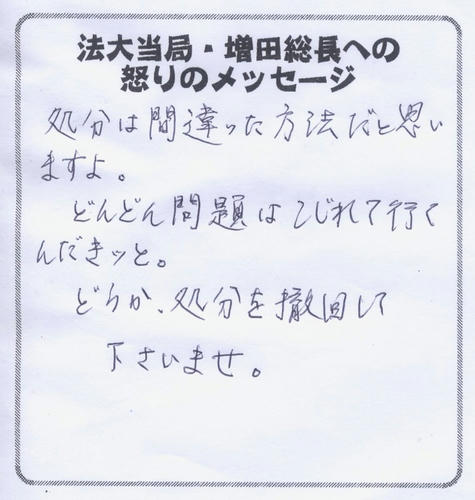 法大当局・増田総長への
怒りのメッセージ
処分は間違った方法だと思い
ますよ。
どんどん問題はこじれて行く
んだきッと。
どうか、処分を撤回して
下さいませ。